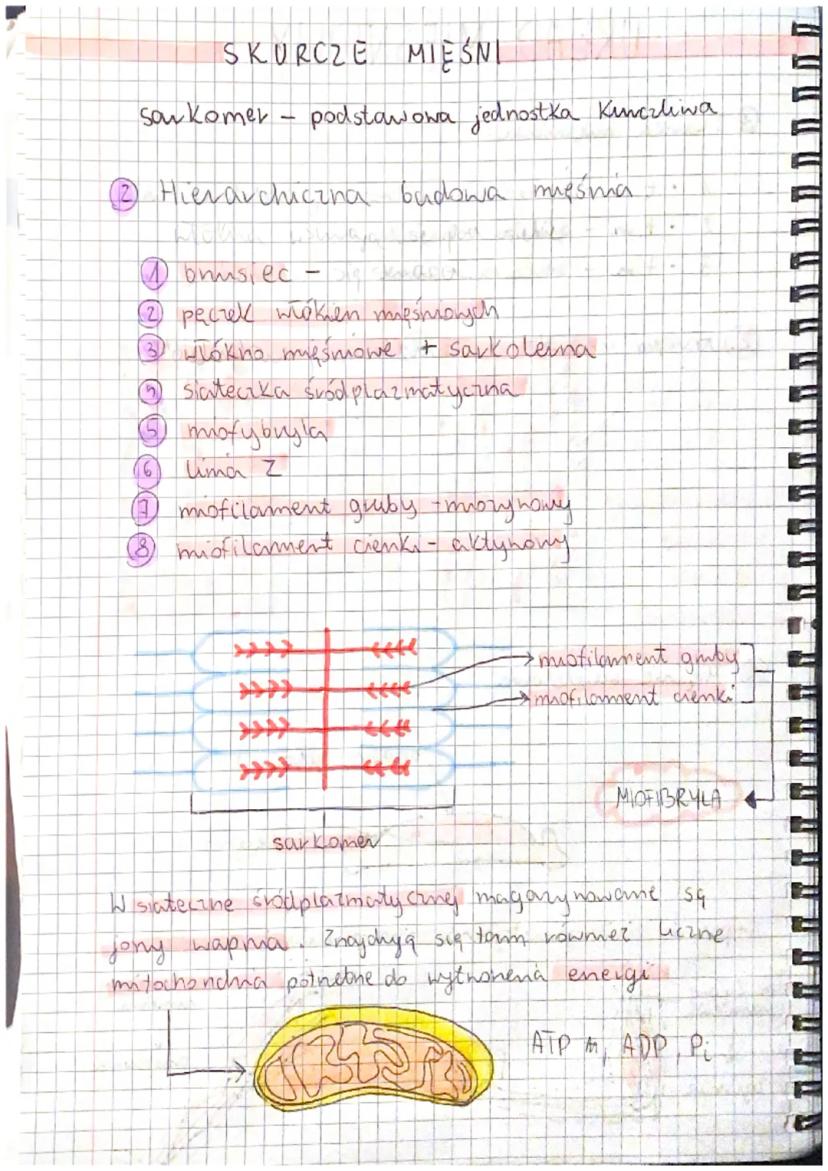 SKURCZE MIĘŚNI
sarkomer – podstawowa jednostka kurczliwa
② Hierarchiczna budowa mięśnia
① brzusiec –
② pęczek włókien mięśniowych
③ włókno mięśniowe + sarkolema
④ siateczka śródplazmatyczna
⑤ miofybryla
⑥ linia Z
⑦ miofilament gruby - miozynowy
⑧ miofilament cienki - aktynowy
miofilament gruby
miofilament cienki
MIOFIBRYLA
sarkomer
W siateczne śródplazmatycznej magazynowane są
jony wapnia. Znajdują się tam również liczne
mitochondria potrzebne do wytworzenia energi
ATP, ADP, Pi